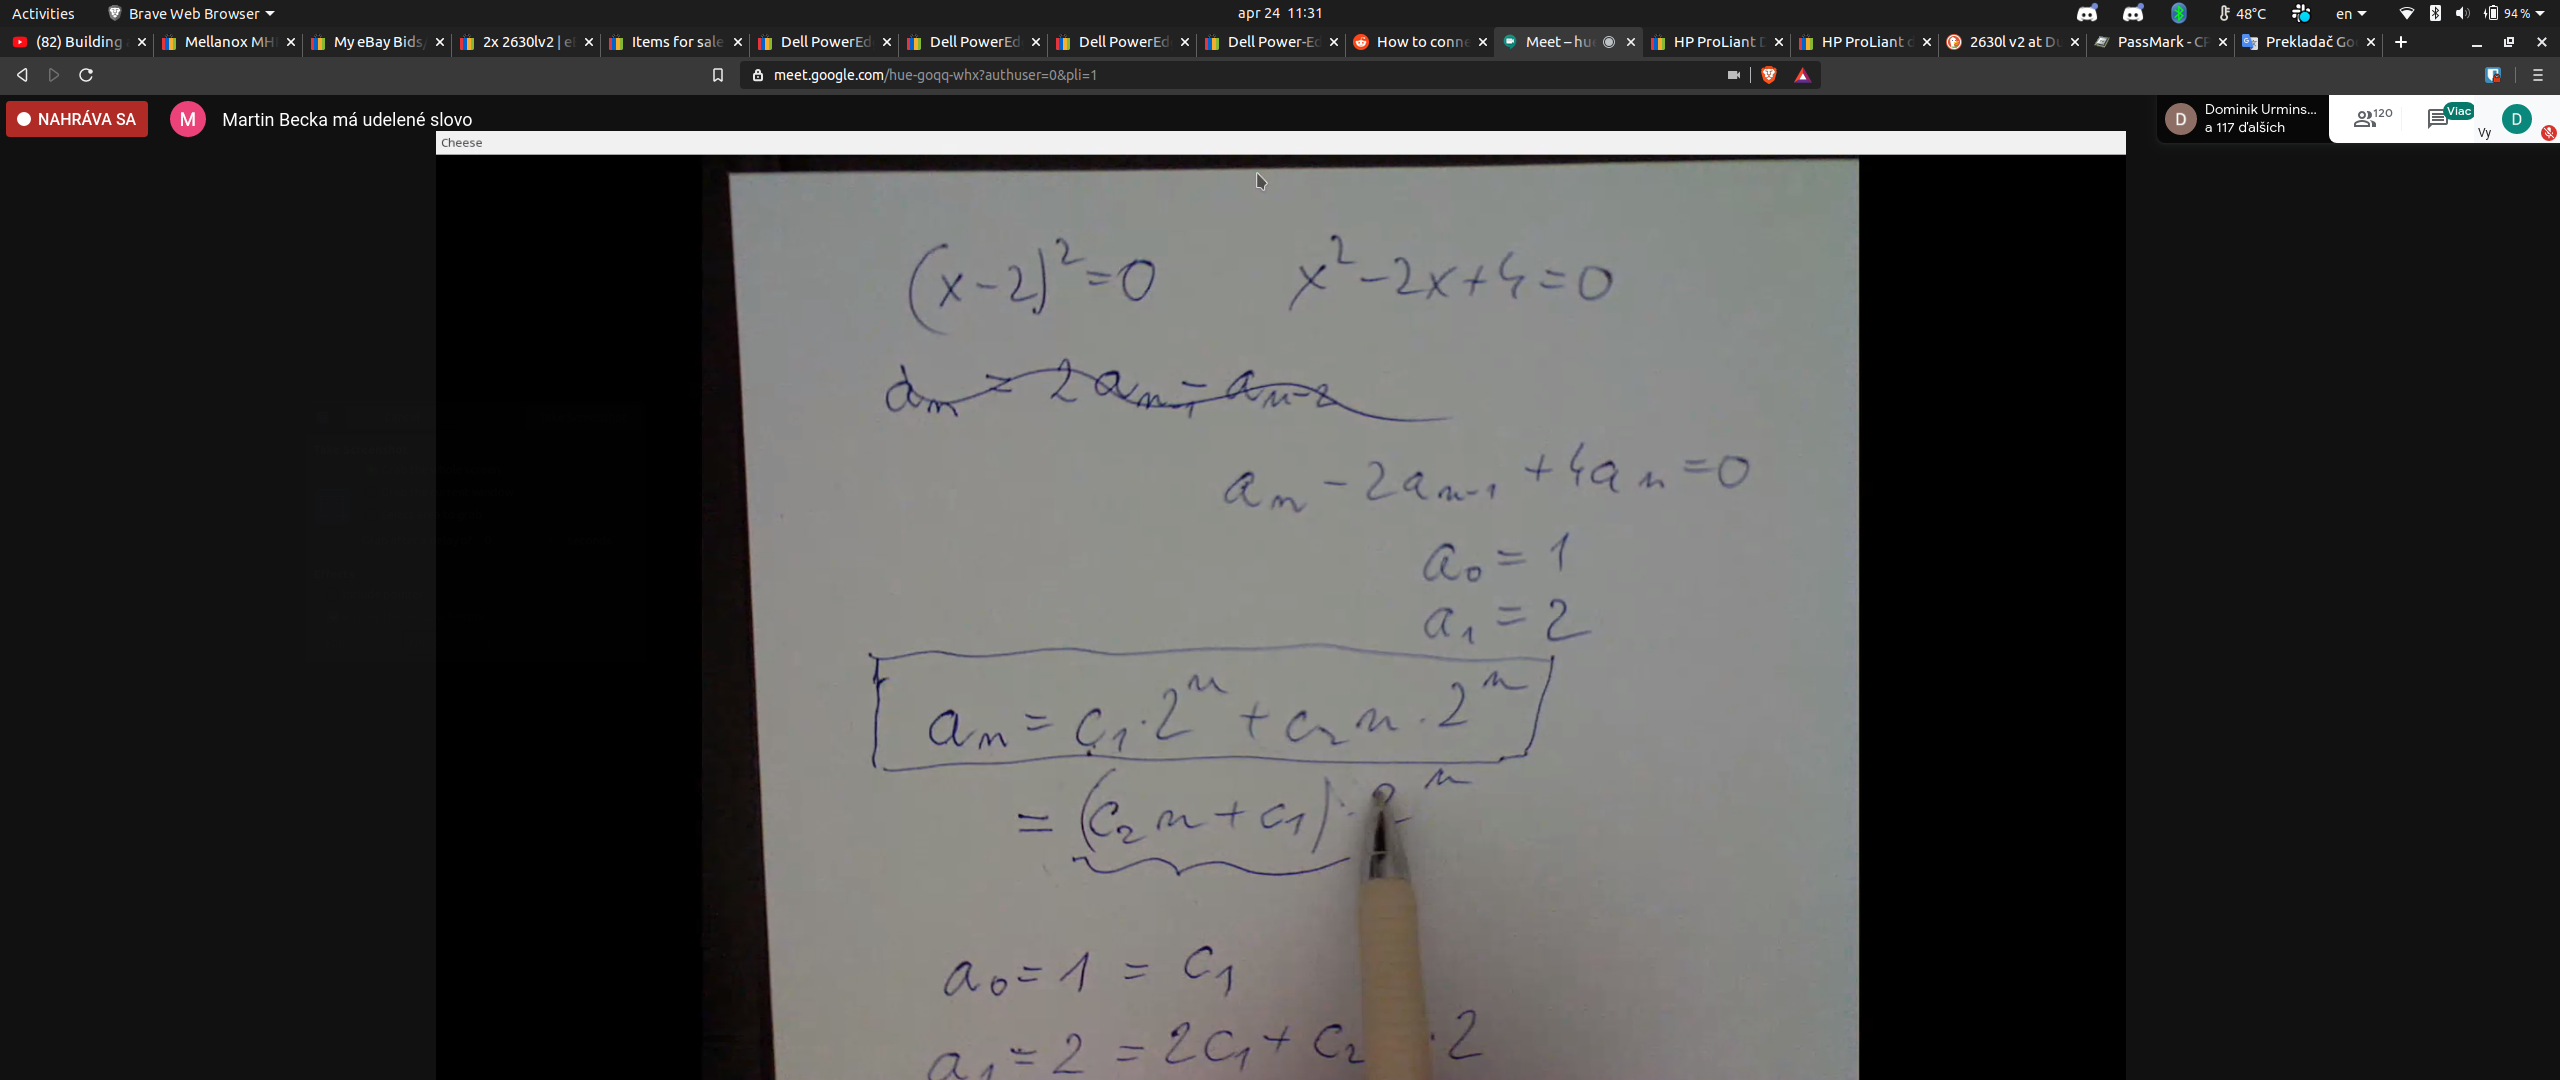 Activities Brave Web Browser apr 24 11:31 48°C en 94 %
(82) Building Mellanox MH My eBay Bids/ 2x 2630lv2 | e Items for sale Dell PowerEd Dell PowerEd Dell PowerEd Dell Power-Ed How to conne Meet – hue HP ProLiant D HP ProLiant d 2630l v2 at Du PassMark - CP Prekladač Goo
meet.google.com/hue-goqq-whx?authuser=0&pli=1
NAHRÁVA SA M Martin Becka má udelené slovo
D Dominik Urmins...
a 117 ďalších
120 Viac Vy D
Cheese
(x-2)²=0 x²-2x+4=0
aₙ = 2aₙ₋₁ - aₙ₋₂
aₙ - 2aₙ₋₁ + 4aₙ = 0
a₀ = 1
a₁ = 2
aₙ = c₁·2ⁿ + c₂n·2ⁿ
= (c₂n + c₁)·2ⁿ
a₀ = 1 = c₁
a₁ = 2 = 2c₁ + c₂ ·2